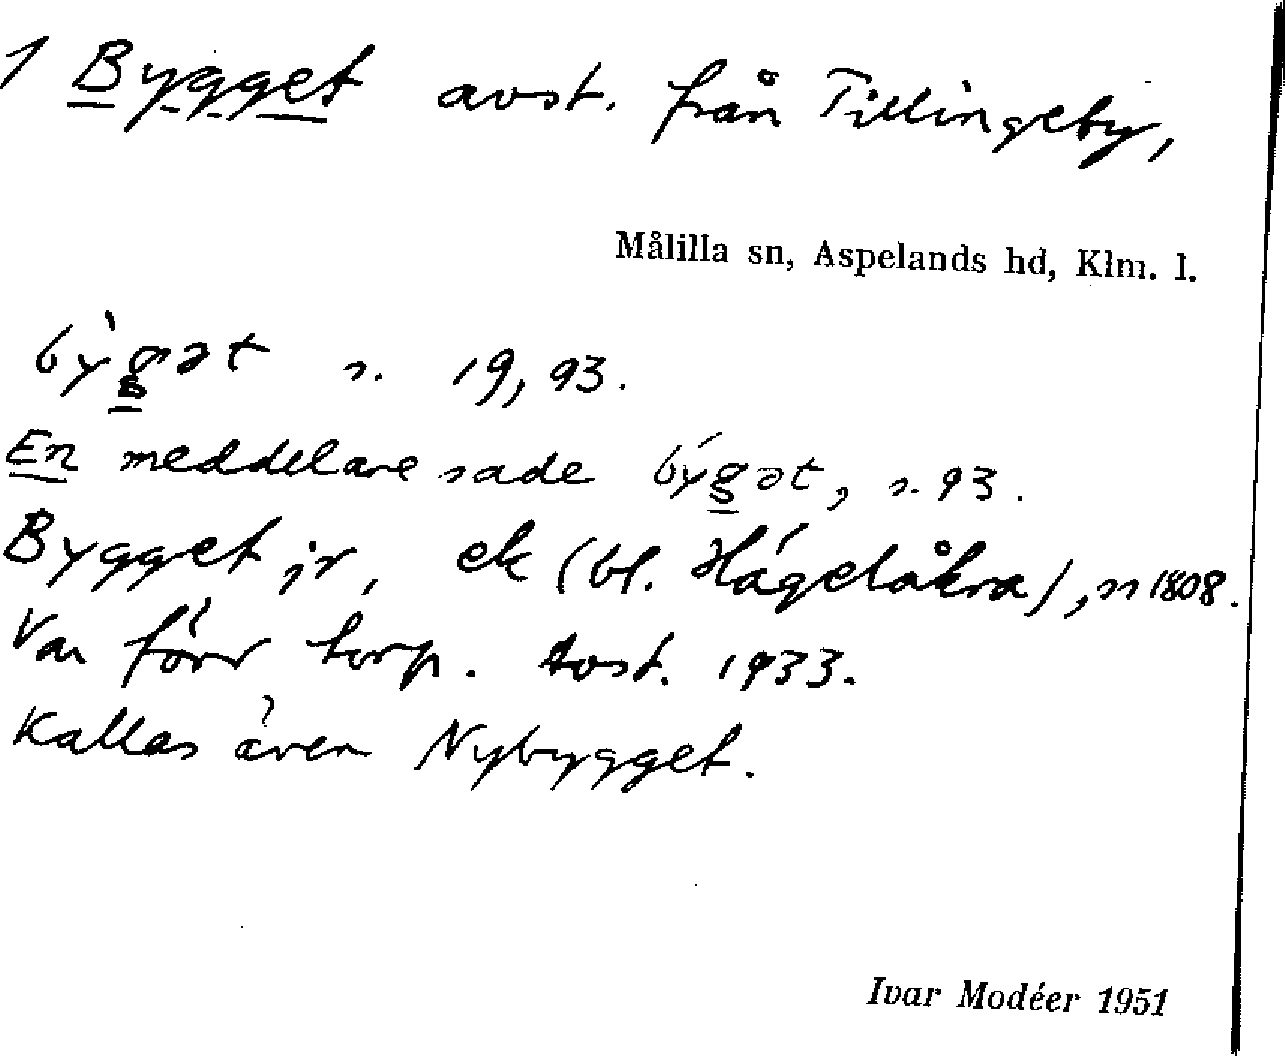 1 Bygget avst. från Tillingeby,
Målilla sn, Aspelands hd, Klm. l.
bỳgət s. 19, 93.
En meddelare sade býgət, s. 93.
Bygget jr, ek (bl. Hägelåkra), sn 1808.
Var förr torp. Avst. 1933.
Kallas även Nybygget.
Ivar Modéer 1951